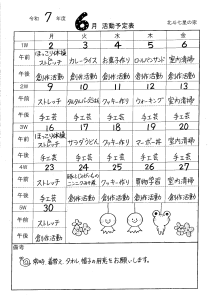 令和 7 年度 6月 活動予定表 北斗七星の家
月 火 水 木 金
1W 2 3 4 5 6
午前 ほっこり体操 ストレッチ カレーライス お菓子作り ロールパンサンド 室内清掃
午後 創作活動 手工芸 創作活動 手工芸 創作活動
2W 9 10 11 12 13
午前 ストレッチ クッキー作り ウォーキング 室内清掃
午後 手工芸 創作活動 手工芸 創作活動 手工芸
3W 16 17 18 19 20
午前 ストレッチ サラダうどん クッキー作り マーボー丼 室内清掃
午後 創作活動 手工芸 創作活動 手工芸 創作活動
4W 23 24 25 26 27
午前 ストレッチ クッキー作り 室内清掃
午後 手工芸 創作活動 手工芸 創作活動 手工芸
5W 30
午前 ストレッチ
午後 創作活動
備考
常時、着替え、タオル、帽子の用意をお願いします。